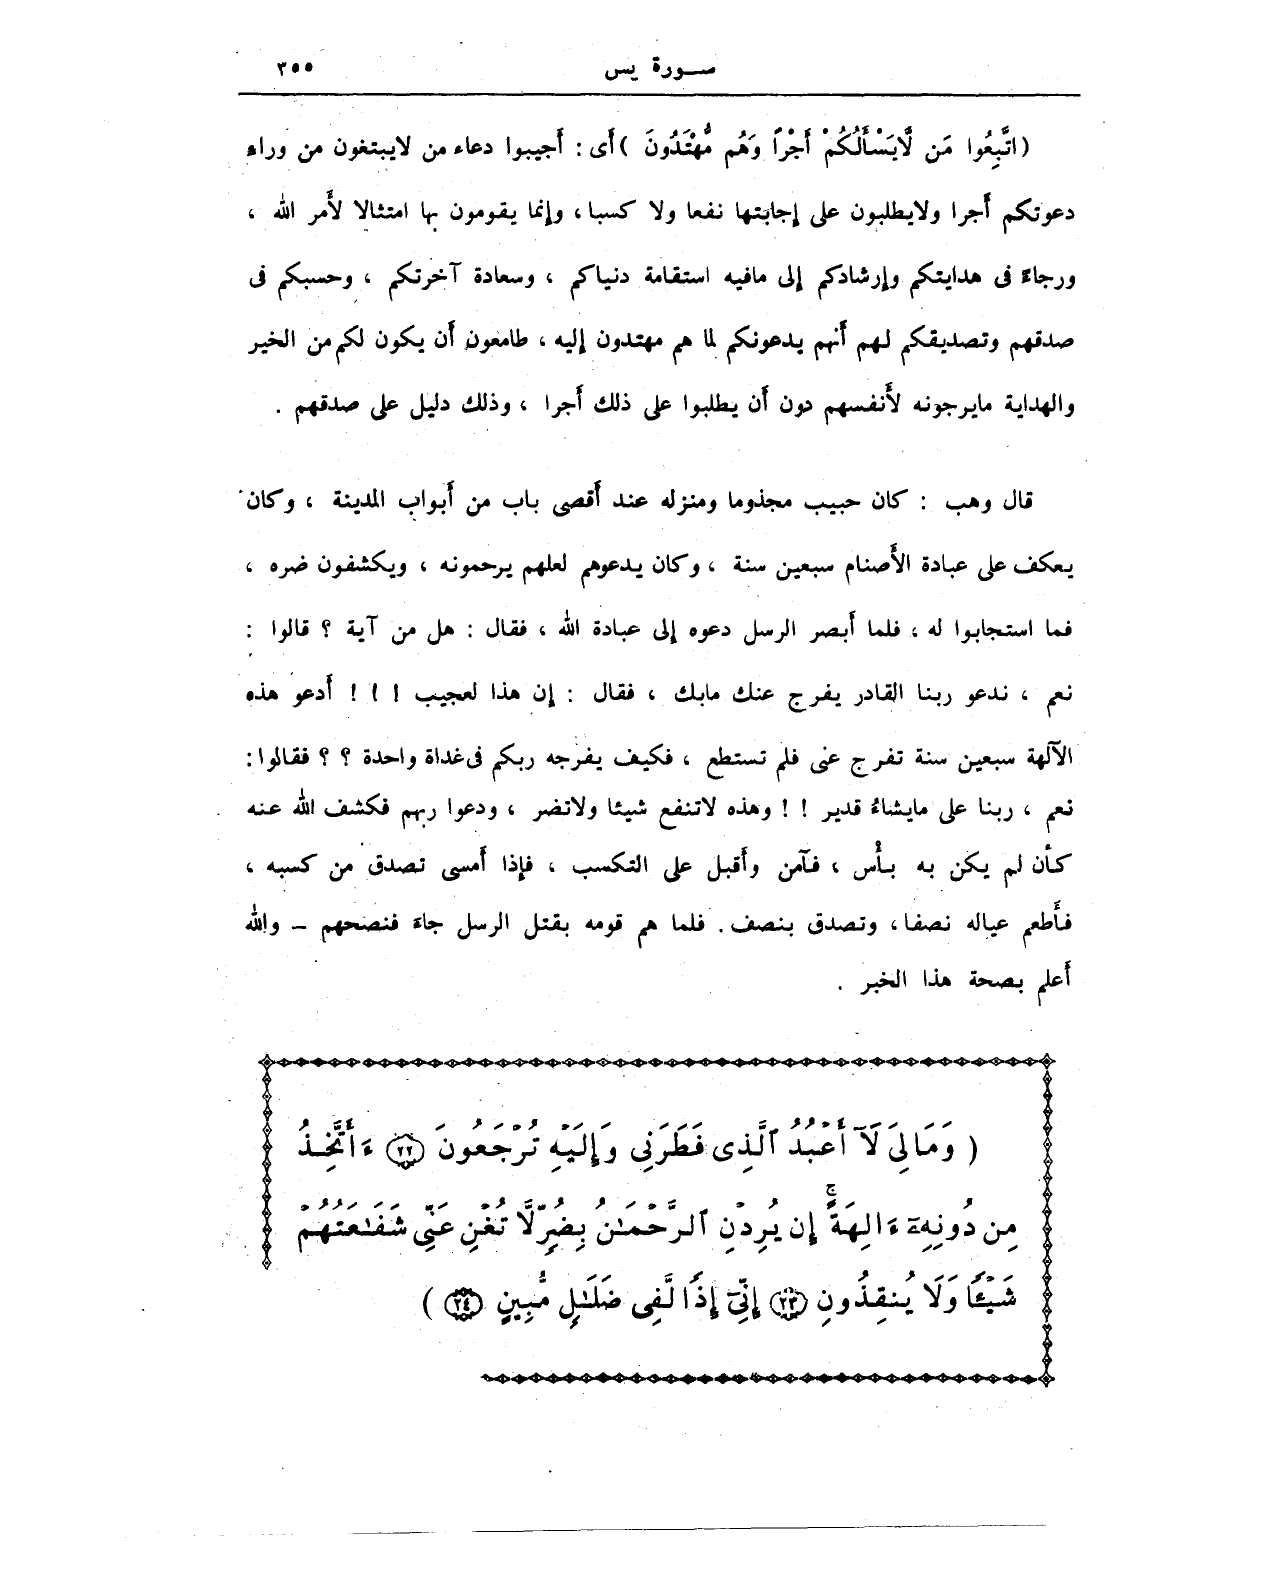 سورة يس ٣٥٥
(اتَّبِعُوا مَن لَّايَسْأَلُكُمْ أَجْرًا وَهُم مُّهْتَدُونَ) أى : أجيبوا دعاء من لايبتغون من وراء
دعوتكم أجرا ولايطلبون على إجابتها نفعا ولا كسبا ، وإنما يقومون بها امتثالا لأمر الله ،
ورجاءً فى هدايتكم وإرشادكم إلى مافيه استقامة دنياكم ، وسعادة آخرتكم ، وحسبكم فى
صدقهم وتصديقكم لهم أنهم يدعونكم لما هم مهتدون إليه ، طامعون أن يكون لكم من الخير
والهداية مايرجونه لأنفسهم دون أن يطلبوا على ذلك أجرا ، وذلك دليل على صدقهم .
قال وهب : كان حبيب مجذوما ومنزله عند أقصى باب من أبواب المدينة ، وكان
يعكف على عبادة الأصنام سبعين سنة ، وكان يدعوهم لعلهم يرحمونه ، ويكشفون ضره ،
فما استجابوا له ، فلما أبصر الرسل دعوه إلى عبادة الله ، فقال : هل من آية ؟ قالوا :
نعم ، ندعو ربنا القادر يفرج عنك مابك ، فقال : إن هذا لعجيب ! ! ! أدعو هذه
الآلهة سبعين سنة تفرج عنى فلم تستطع ، فكيف يفرجه ربكم فى غداة واحدة ؟ ؟ فقالوا :
نعم ، ربنا على مايشاءُ قدير ! ! وهذه لاتنفع شيئا ولاتضر ، ودعوا ربهم فكشف الله عنه
كأن لم يكن به بأْس ، فآمن وأقبل على التكسب ، فإذا أمسى تصدق من كسبه ،
فأطعم عياله نصفا ، وتصدق بنصف . فلما هم قومه بقتل الرسل جاءَ فنصحهم – والله
أعلم بصحة هذا الخبر .
( وَمَا لِىَ لَآ أَعْبُدُ ٱلَّذِى فَطَرَنِى وَإِلَيْهِ تُرْجَعُونَ ٢٢ ءَأَتَّخِذُ
مِن دُونِهِۦٓ ءَالِهَةً ۚ إِن يُرِدْنِ ٱلرَّحْمَـٰنُ بِضُرٍّ لَّا تُغْنِ عَنِّى شَفَـٰعَتُهُمْ
شَيْـًٔا وَلَا يُنقِذُونِ ٢٣ إِنِّىٓ إِذًا لَّفِى ضَلَـٰلٍ مُّبِينٍ ٢٤ )